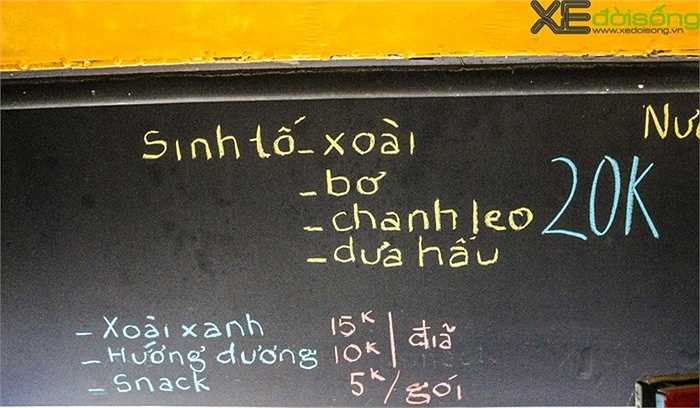 XEđờisống
www.xedoisong.vn
Sinh tố - xoài
- bơ
- chanh leo
- dưa hấu
20K
- Xoài xanh 15K / đĩa
- Hướng dương 10K
- Snack 5K / gói